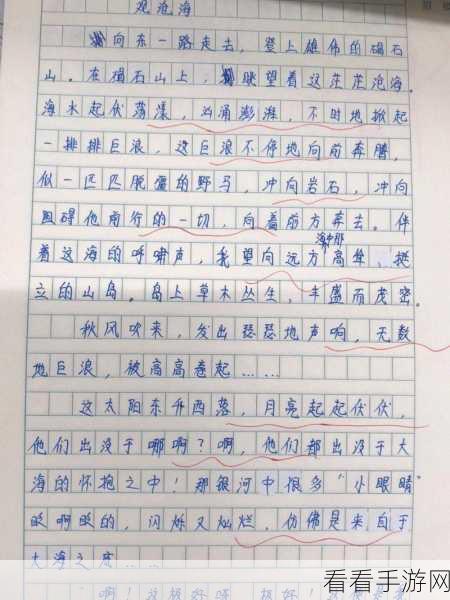 观沧海
向东一路走去，登上雄伟的碣石
山。在碣石山上，眺望着这茫茫沧海。
海水起伏荡漾，汹涌澎湃，不时地掀起
一排排巨浪，这巨浪不停地向前奔腾，
似一匹匹脱缰的野马，冲向岩石，冲向
阻碍他前行的一切，向着前方奔去。伴
着这海的呼啸声，我望向远方海中那高耸、挺
立的山岛。岛上草木丛生，丰盛而茂密。
秋风吹来，发出瑟瑟地声响，无数
地巨浪，被高高卷起……
这太阳东升西落，月亮起起伏伏，
他们出没于哪啊？啊，他们都出没于大
海的怀抱之中！那银河中很多“小眼睛”
眨啊眨的，闪烁又灿烂，仿佛是来自于
大海之底……
啊！这极好呀，极好！
看看手游网